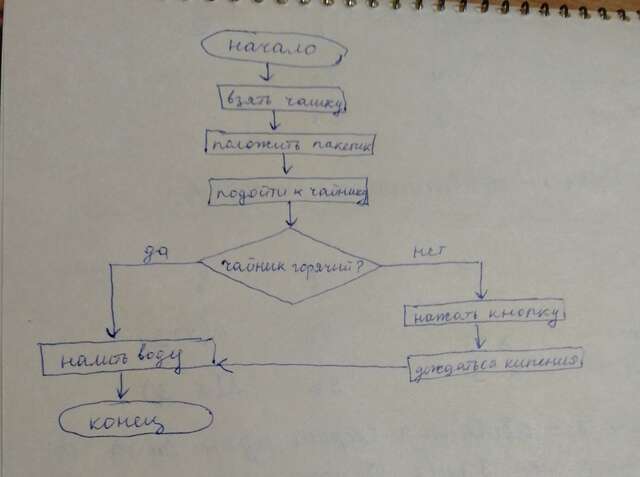 начало
взять чашку
положить пакетик
подойти к чайнику
чайник горячий?
да
нет
нажать кнопку
дождаться кипения
налить воду
конец